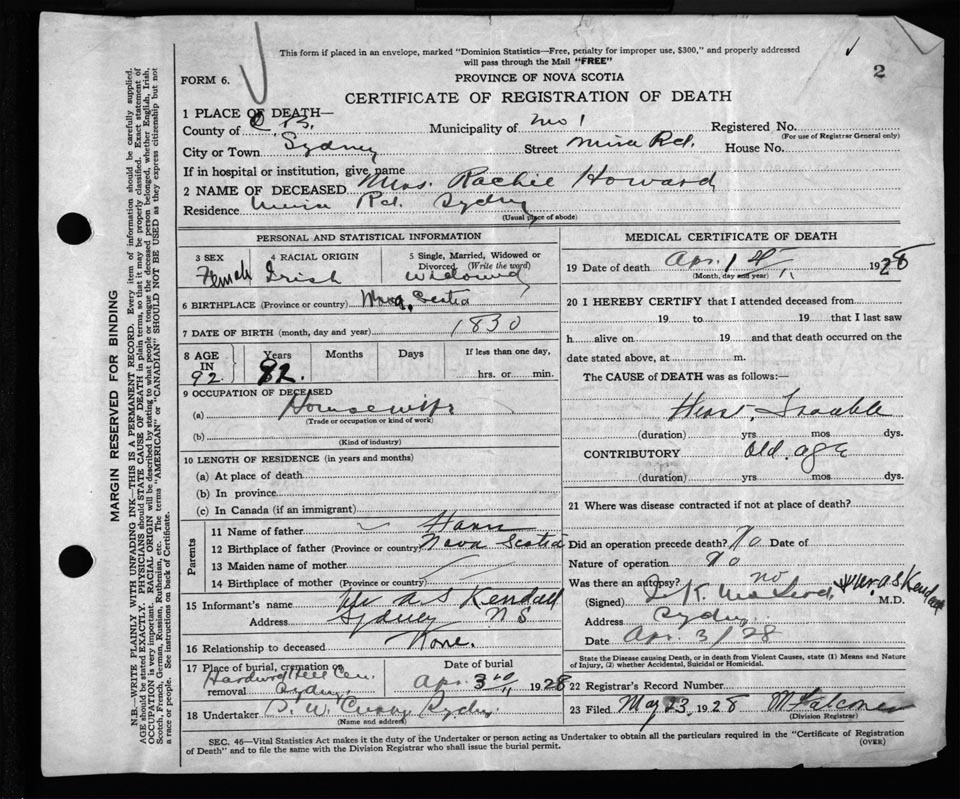 This form if placed in an envelope, marked "Dominion Statistics—Free, penalty for improper use, $300," and properly addressed
will pass through the Mail "FREE"
2
FORM 6.
PROVINCE OF NOVA SCOTIA
CERTIFICATE OF REGISTRATION OF DEATH
1 PLACE OF DEATH—
County of C. B. Municipality of No 1 Registered No.
(For use of Registrar General only)
City or Town Sydney Street Mira Rd. House No.
If in hospital or institution, give name
2 NAME OF DECEASED Mrs. Rachel Howard
Residence Mira Rd. Sydney
(Usual place of abode)
PERSONAL AND STATISTICAL INFORMATION
3 SEX 4 RACIAL ORIGIN 5 Single, Married, Widowed or
Divorced. (Write the word)
Female Irish Widowed
6 BIRTHPLACE (Province or country) Nova Scotia
7 DATE OF BIRTH (month, day and year) 1830
8 AGE IN Years Months Days If less than one day,
92 92. hrs. or min.
9 OCCUPATION OF DECEASED
(a) Housewife
(Trade or occupation or kind of work)
(b)
(Kind of industry)
10 LENGTH OF RESIDENCE (in years and months)
(a) At place of death
(b) In province
(c) In Canada (if an immigrant)
Parents
11 Name of father
12 Birthplace of father (Province or country) Nova Scotia
13 Maiden name of mother
14 Birthplace of mother (Province or country)
15 Informant's name Mr A S Kendall
Address Sydney N S
16 Relationship to deceased None.
17 Place of burial, cremation or Date of burial
Hardwood Hill Cem.
removal Sydney Apr. 3rd 1928
18 Undertaker Sydney.
(Name and address)
MEDICAL CERTIFICATE OF DEATH
19 Date of death Apr. 1st 1928
(Month, day and year)
20 I HEREBY CERTIFY that I attended deceased from
19 to 19 that I last saw
h alive on 19 and that death occurred on the
date stated above, at m.
The CAUSE of DEATH was as follows:—
Heart Trouble
(duration) yrs mos dys.
CONTRIBUTORY Old age
(duration) yrs mos dys.
21 Where was disease contracted if not at place of death?
Did an operation precede death? No Date of
Nature of operation No
Was there an autopsy? no
(Signed) K. McLeod M.D.
Address Sydney
Date Apr. 3/28
State the Disease causing Death, or in death from Violent Causes, state (1) Means and Nature
of Injury, (2) whether Accidental, Suicidal or Homicidal.
22 Registrar's Record Number
23 Filed May 23, 1928 M Falconer
(Division Registrar)
SEC. 46—Vital Statistics Act makes it the duty of the Undertaker or person acting as Undertaker to obtain all the particulars required in the "Certificate of Registration
of Death" and to file the same with the Division Registrar who shall issue the burial permit.
(OVER)
MARGIN RESERVED FOR BINDING
N.B.—WRITE PLAINLY WITH UNFADING INK—THIS IS A PERMANENT RECORD. Every item of information should be carefully supplied.
AGE should be stated EXACTLY. PHYSICIANS should STATE CAUSE OF DEATH in plain terms, so that it may be properly classified. Exact statement of
OCCUPATION is very important. RACIAL ORIGIN will be described by stating to what people or tongue the deceased person belonged, whether English, Irish,
Scotch, French, German, Russian, Ruthenian, etc. The terms "AMERICAN" or "CANADIAN" SHOULD NOT BE USED as they express citizenship but not
a race or people. See instructions on back of Certificate.